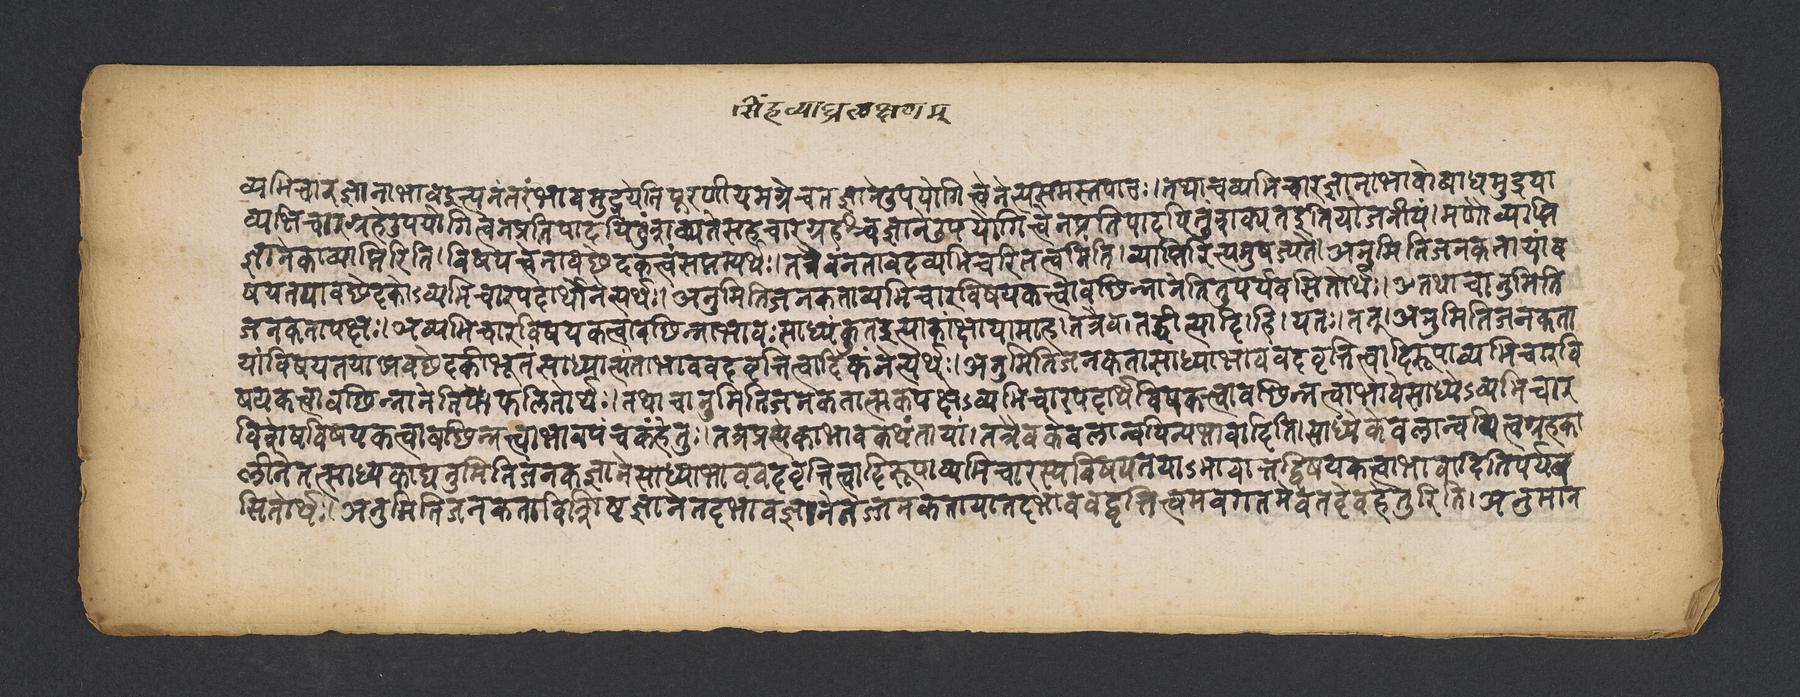 सिंहव्याघ्रलक्षणम्
व्यभिचारज्ञानाभावइत्यनंतरंभावमुदुयेति पूरणीयमग्रेचतज्ञानेउपयोगित्वेनेत्यसमस्तपाठः। तथाचव्यभिचारज्ञानाभावोबाधमुदुया
व्यभिचाराग्रहउपयोगित्वेनप्रतिपादयितुंशक्यतेसहचारग्रहश्चज्ञानउपयोगित्वेनप्रतिपादयितुंशक्यतइतियोजनीयं। मणौव्याप्ति
ज्ञानेकाव्याप्तिरिति। विषयत्वेनावच्छेदकत्वंसप्तम्यर्थः। तत्रैवनतावदव्यभिचरितत्वमिति। व्याप्तिरित्यनुषज्यते। अनुमितिजनकतायांवि
षयतयावच्छेदकाऽव्यभिचारपदार्थोनेत्यर्थः। अनुमितिजनकताव्यभिचारविषयकत्वावच्छिन्नानेतितुपर्यवसितार्थः। तथाचानुमिति
जनकतापक्षः। अव्यभिचारविषयकत्वावच्छिन्नाभावः साध्यंकुतइत्याकांक्षायामाह। तत्रैव। तद्धीत्यादि। हि। यतः। तत्। अनुमितिजनकता
यांविषयतयाअवच्छेदकीभूतंसाध्यात्यंताभाववदवृत्तित्वादिकंनेत्यर्थः। अनुमितिजनकतासाध्याभाववदवृत्तित्वादिरूपाव्यभिचारवि
षयकत्वावच्छिन्नानेतिफलितार्थः। तथाचानुमितिजनकतात्मकपक्षेऽव्यभिचारपदार्थविषकत्वावच्छिन्नत्वाभावसाध्येऽव्यभिचार
विशेषविषयकत्वावच्छिन्नत्वाभावपंचकंहेतुः। तत्रप्रत्येकाभावकथंतायां। तत्रैवकेवलान्वयिन्यभावादिति। साध्येकेवलान्वयित्वग्रहका
लीनेतत्साध्यकाद्यनुमितिजनकज्ञानेसाध्याभाववदवृत्तित्वादिरूपाव्यभिचारस्यविषयतयाऽभावात्तद्विषयकत्वाभावादितिपर्यव
सितार्थः। अनुमितिजनकताविशिष्टज्ञानेतदभावज्ञानेनजनकतायातदभाववद्वृत्तित्वमवगतमेवतदेवहेतुरिति। अनुमान